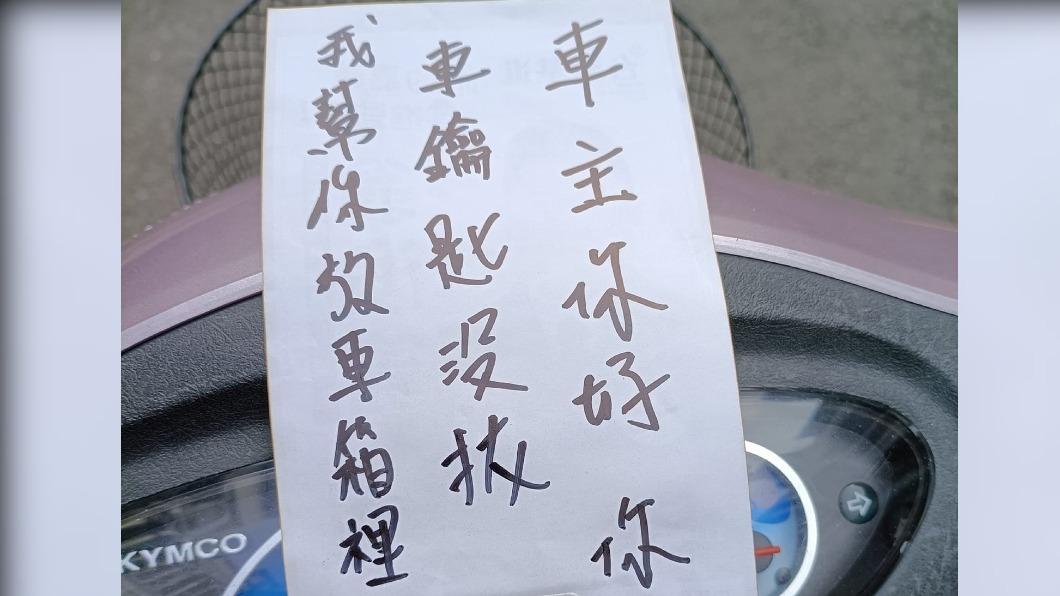 車主你好 你
車鑰匙沒拔
我幫你放車箱裡
KYMCO